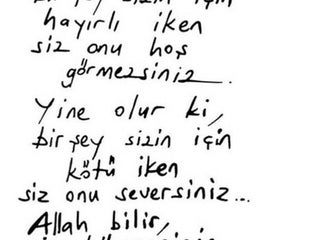 şey sizin için
hayırlı iken
siz onu hoş
görmezsiniz.
Yine olur ki,
bir şey sizin için
kötü iken
siz onu seversiniz...
Allah bilir,